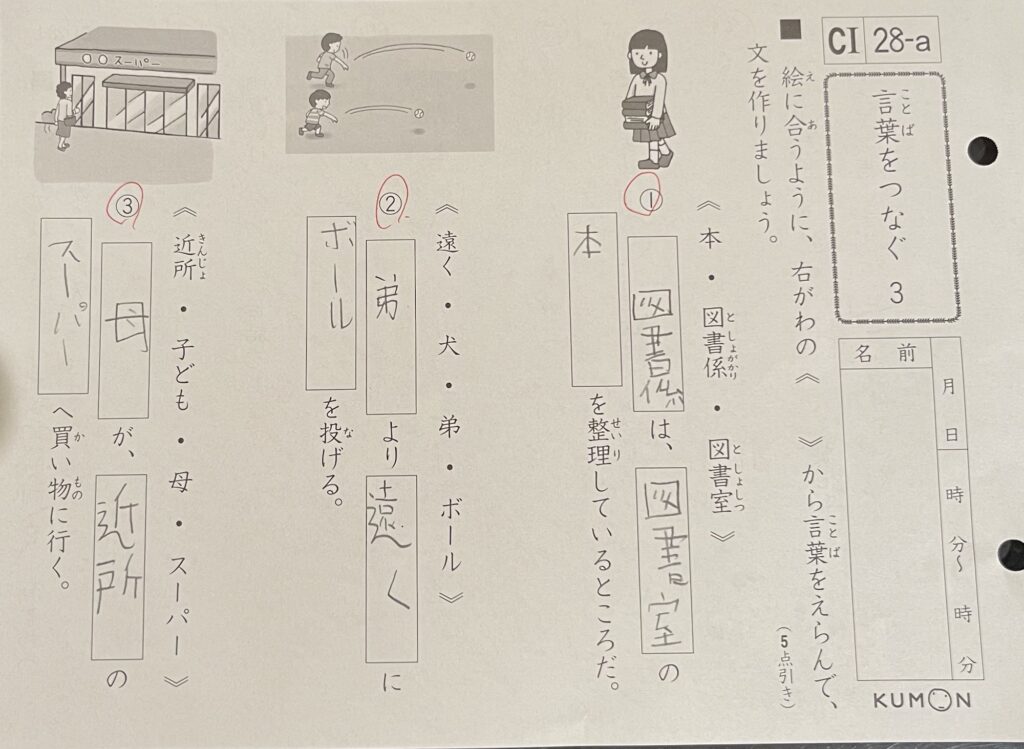 CI 28-a
言葉をつなぐ 3
ことば
月 日 時 分〜 時 分
名前
KUMON
■ 絵に合うように、右がわの《 》から言葉をえらんで、
え あ ことば
文を作りましょう。
(5点引き)
《 本 ・ 図書係 ・ 図書室 》
としょがかり としょしつ
① 図書係 は、 図書室 の
本 を整理しているところだ。
せいり
《 遠く ・ 犬 ・ 弟 ・ ボール 》
② 弟 より 遠く に
ボール を投げる。
な
○○スーパー
《 近所 ・ 子ども ・ 母 ・ スーパー 》
きんじょ
③ 母 が、 近所 の
スーパー へ買い物に行く。
か もの